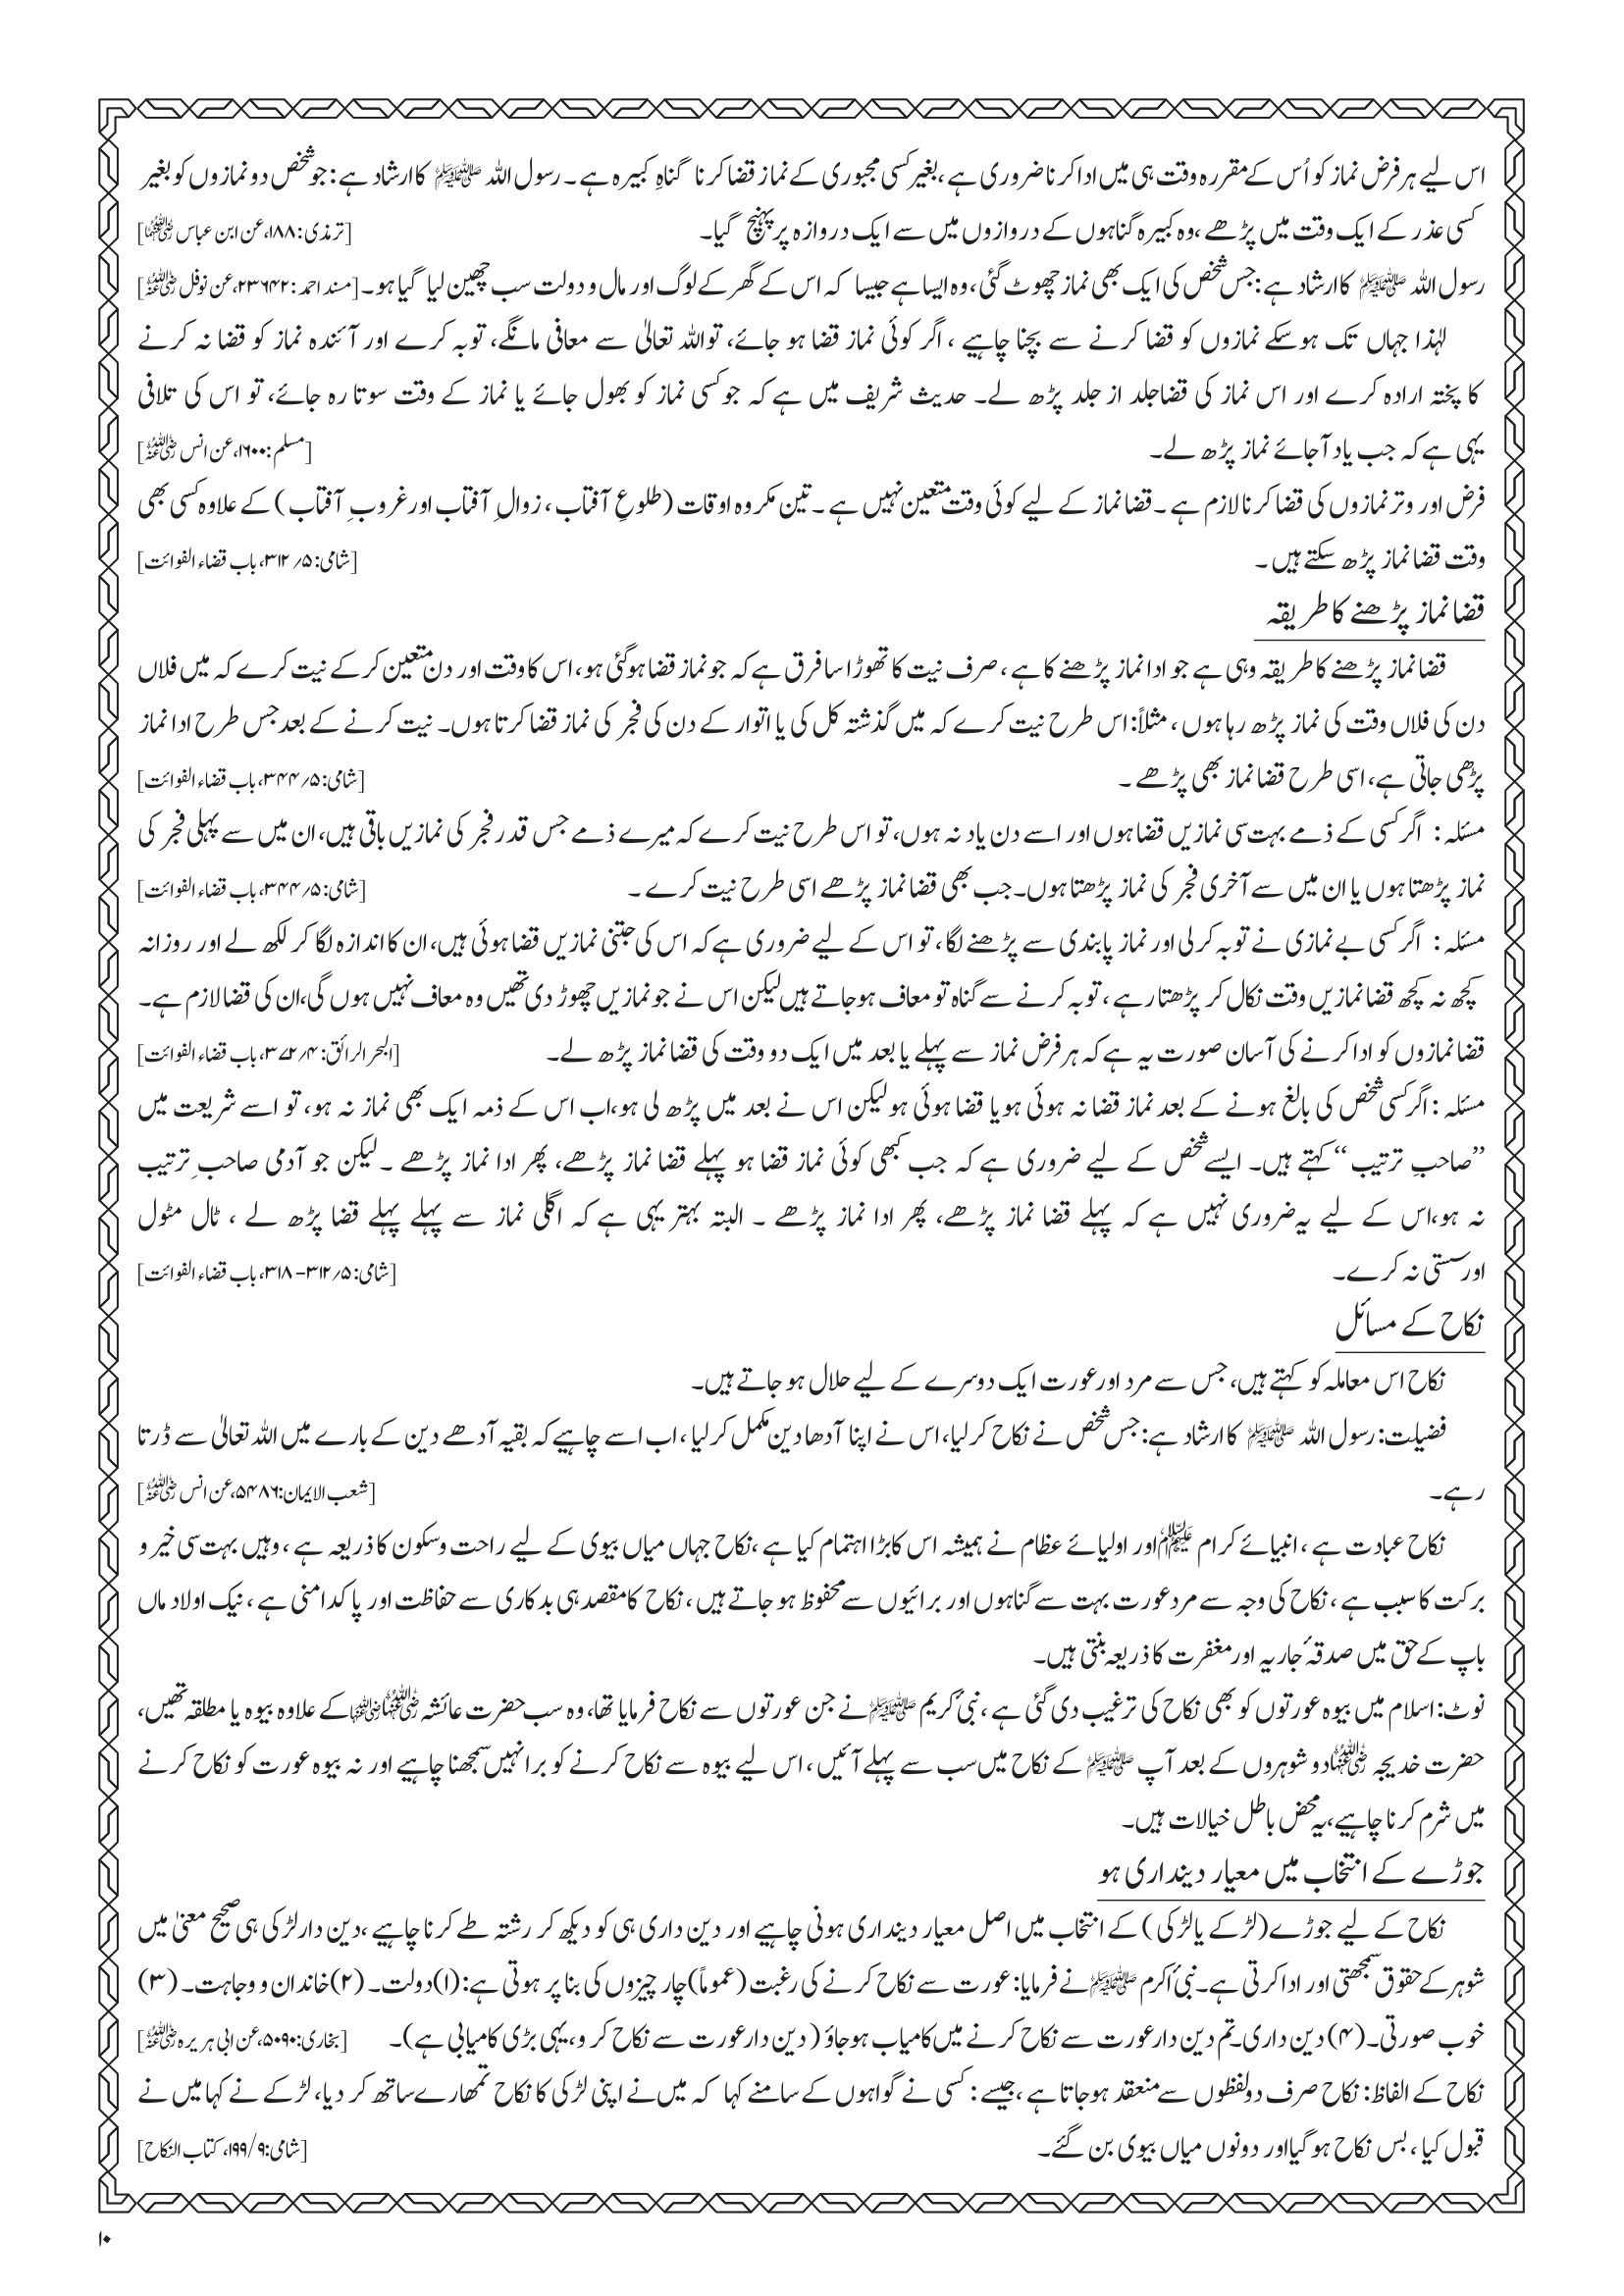 اس لیے ہر فرض نماز کو اُس کے مقررہ وقت ہی میں ادا کرنا ضروری ہے، بغیر کسی مجبوری کے نماز قضا کرنا گناہِ کبیرہ ہے۔ رسول اللہ ﷺ کا ارشاد ہے: جو شخص دو نمازوں کو بغیر
کسی عذر کے ایک وقت میں پڑھے، وہ کبیرہ گناہوں کے دروازوں میں سے ایک دروازہ پر پہنچ گیا۔ [ترمذی: ۱۸۸، عن ابن عباس رضی اللہ عنہما]
رسول اللہ ﷺ کا ارشاد ہے: جس شخص کی ایک بھی نماز چھوٹ گئی، وہ ایسا ہے جیسا کہ اس کے گھر کے لوگ اور مال و دولت سب چھین لیا گیا ہو۔ [مسند احمد: ۲۳۶۴۲، عن نوفل رضی اللہ عنہ]
لہٰذا جہاں تک ہو سکے نمازوں کو قضا کرنے سے بچنا چاہیے، اگر کوئی نماز قضا ہو جائے، تو اللہ تعالیٰ سے معافی مانگے، توبہ کرے اور آئندہ نماز کو قضا نہ کرنے
کا پختہ ارادہ کرے اور اس نماز کی قضا جلد از جلد پڑھ لے۔ حدیث شریف میں ہے کہ جو کسی نماز کو بھول جائے یا نماز کے وقت سوتا رہ جائے، تو اس کی تلافی
یہی ہے کہ جب یاد آجائے نماز پڑھ لے۔ [مسلم: ۱۶۰۰، عن انس رضی اللہ عنہ]
فرض اور وتر نمازوں کی قضا کرنا لازم ہے۔ قضا نماز کے لیے کوئی وقت متعین نہیں ہے۔ تین مکروہ اوقات (طلوعِ آفتاب، زوالِ آفتاب اور غروبِ آفتاب) کے علاوہ کسی بھی
وقت قضا نماز پڑھ سکتے ہیں۔ [شامی: ۵/ ۳۱۲، باب قضاء الفوائت]
قضا نماز پڑھنے کا طریقہ
قضا نماز پڑھنے کا طریقہ وہی ہے جو ادا نماز پڑھنے کا ہے، صرف نیت کا تھوڑا سا فرق ہے کہ جو نماز قضا ہو گئی ہو، اس کا وقت اور دن متعین کرکے نیت کرے کہ میں فلاں
دن کی فلاں وقت کی نماز پڑھ رہا ہوں، مثلاً: اس طرح نیت کرے کہ میں گذشتہ کل کی یا اتوار کے دن کی فجر کی نماز قضا کرتا ہوں۔ نیت کرنے کے بعد جس طرح ادا نماز
پڑھی جاتی ہے، اسی طرح قضا نماز بھی پڑھے۔ [شامی: ۵/ ۳۴۴، باب قضاء الفوائت]
مسئلہ: اگر کسی کے ذمے بہت سی نمازیں قضا ہوں اور اسے دن یاد نہ ہوں، تو اس طرح نیت کرے کہ میرے ذمے جس قدر فجر کی نمازیں باقی ہیں، ان میں سے پہلی فجر کی
نماز پڑھتا ہوں یا ان میں سے آخری فجر کی نماز پڑھتا ہوں۔ جب بھی قضا نماز پڑھے اسی طرح نیت کرے۔ [شامی: ۵/ ۳۴۴، باب قضاء الفوائت]
مسئلہ: اگر کسی بے نمازی نے توبہ کر لی اور نماز پابندی سے پڑھنے لگا، تو اس کے لیے ضروری ہے کہ اس کی جتنی نمازیں قضا ہوئی ہیں، ان کا اندازہ لگا کر لکھ لے اور روزانہ
کچھ نہ کچھ قضا نمازیں وقت نکال کر پڑھتا رہے، توبہ کرنے سے گناہ تو معاف ہو جاتے ہیں لیکن اس نے جو نمازیں چھوڑ دی تھیں وہ معاف نہیں ہوں گی، ان کی قضا لازم ہے۔
قضا نمازوں کو ادا کرنے کی آسان صورت یہ ہے کہ ہر فرض نماز سے پہلے یا بعد میں ایک دو وقت کی قضا نماز پڑھ لے۔ [البحر الرائق: ۴/ ۳۷۲، باب قضاء الفوائت]
مسئلہ: اگر کسی شخص کی بالغ ہونے کے بعد نماز قضا نہ ہوئی ہو یا قضا ہوئی ہو لیکن اس نے بعد میں پڑھ لی ہو، اب اس کے ذمہ ایک بھی نماز نہ ہو، تو اسے شریعت میں
’’صاحبِ ترتیب‘‘ کہتے ہیں۔ ایسے شخص کے لیے ضروری ہے کہ جب کبھی کوئی نماز قضا ہو پہلے قضا نماز پڑھے، پھر ادا نماز پڑھے۔ لیکن جو آدمی صاحبِ ترتیب
نہ ہو، اس کے لیے یہ ضروری نہیں ہے کہ پہلے قضا نماز پڑھے، پھر ادا نماز پڑھے۔ البتہ بہتر یہی ہے کہ اگلی نماز سے پہلے پہلے قضا پڑھ لے، ٹال مٹول
اور سستی نہ کرے۔ [شامی: ۵/ ۳۱۲-۳۱۸، باب قضاء الفوائت]
نکاح کے مسائل
نکاح اس معاملہ کو کہتے ہیں، جس سے مرد اور عورت ایک دوسرے کے لیے حلال ہو جاتے ہیں۔
فضیلت: رسول اللہ ﷺ کا ارشاد ہے: جس شخص نے نکاح کر لیا، اس نے اپنا آدھا دین مکمل کر لیا، اب اسے چاہیے کہ بقیہ آدھے دین کے بارے میں اللہ تعالیٰ سے ڈرتا
رہے۔ [شعب الایمان: ۵۴۸۶، عن انس رضی اللہ عنہ]
نکاح عبادت ہے، انبیائے کرام علیہم السلام اور اولیائے عظام نے ہمیشہ اس کا بڑا اہتمام کیا ہے، نکاح جہاں میاں بیوی کے لیے راحت و سکون کا ذریعہ ہے، وہیں بہت سی خیر و
برکت کا سبب ہے، نکاح کی وجہ سے مرد عورت بہت سے گناہوں اور برائیوں سے محفوظ ہو جاتے ہیں، نکاح کا مقصد ہی بدکاری سے حفاظت اور پاکدامنی ہے، نیک اولاد ماں
باپ کے حق میں صدقۂ جاریہ اور مغفرت کا ذریعہ بنتی ہیں۔
نوٹ: اسلام میں بیوہ عورتوں کو بھی نکاح کی ترغیب دی گئی ہے، نبیٔ کریم ﷺ نے جن عورتوں سے نکاح فرمایا تھا، وہ سب حضرت عائشہ رضی اللہ عنہا کے علاوہ بیوہ یا مطلقہ تھیں،
حضرت خدیجہ رضی اللہ عنہا دو شوہروں کے بعد آپ ﷺ کے نکاح میں سب سے پہلے آئیں، اس لیے بیوہ سے نکاح کرنے کو برا نہیں سمجھنا چاہیے اور نہ بیوہ عورت کو نکاح کرنے
میں شرم کرنا چاہیے، یہ محض باطل خیالات ہیں۔
جوڑے کے انتخاب میں معیار دینداری ہو
نکاح کے لیے جوڑے (لڑکے یا لڑکی) کے انتخاب میں اصل معیار دینداری ہونی چاہیے اور دین داری ہی کو دیکھ کر رشتہ طے کرنا چاہیے، دین دار لڑکی ہی صحیح معنیٰ میں
شوہر کے حقوق سمجھتی اور ادا کرتی ہے۔ نبیٔ اکرم ﷺ نے فرمایا: عورت سے نکاح کرنے کی رغبت (عموماً) چار چیزوں کی بنا پر ہوتی ہے: (۱) دولت۔ (۲) خاندان و وجاہت۔ (۳)
خوب صورتی۔ (۴) دین داری۔ تم دین دار عورت سے نکاح کرنے میں کامیاب ہو جاؤ (دین دار عورت سے نکاح کرو، یہی بڑی کامیابی ہے)۔ [بخاری: ۵۰۹۰، عن ابی ہریرہ رضی اللہ عنہ]
نکاح کے الفاظ: نکاح صرف دو لفظوں سے منعقد ہو جاتا ہے، جیسے: کسی نے گواہوں کے سامنے کہا کہ میں نے اپنی لڑکی کا نکاح تمھارے ساتھ کر دیا، لڑکے نے کہا میں نے
قبول کیا، بس نکاح ہو گیا اور دونوں میاں بیوی بن گئے۔ [شامی: ۹/ ۱۹۹، کتاب النکاح]
۱۰